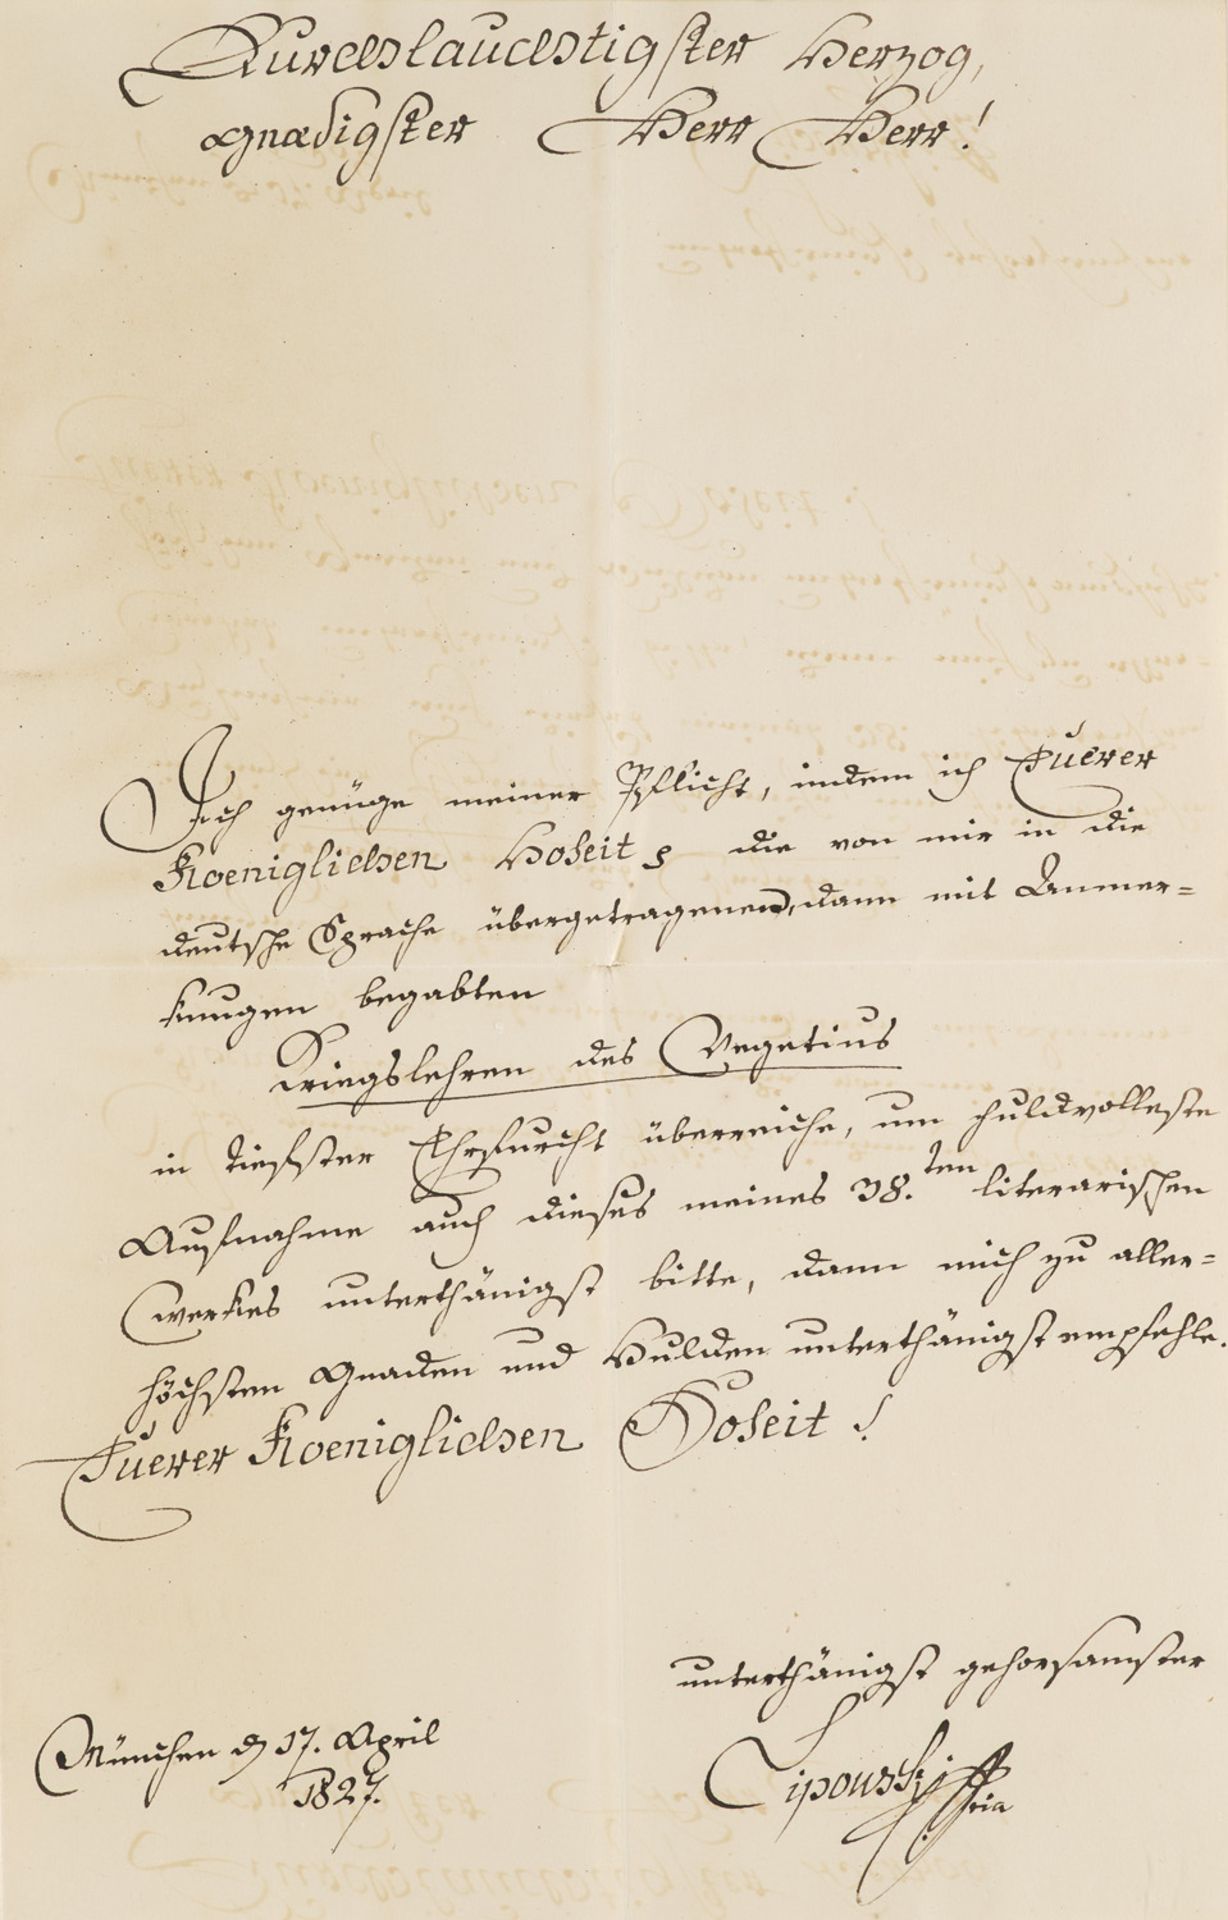 Durchlauchtigster Herzog,
Gnaedigster Herr Herr!
Ich genüge meiner Pflicht, indem ich Euerer
Koeniglichen Hoheit, die von mir in die
deutsche Sprache übergetragenen, dann mit Anmer=
kungen begabten
Kriegslehren des Vegetius
in tiefster Ehrfurcht überreiche, um huldvolleste
Aufnahme auch dieses meines 38.ten literarischen
Werkes unterthänigst bitte, dann mich zu aller=
höchsten Gnaden und Hulden unterthänigst empfehle.
Euerer Koeniglichen Hoheit!
unterthänigst gehorsamster
München d 17. April
1827.
Lipowsky